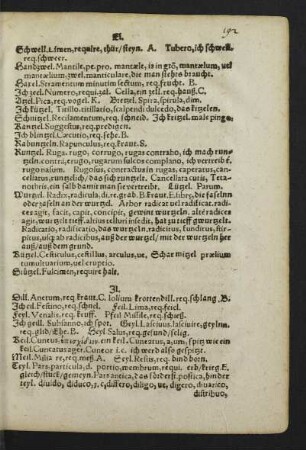 El.
192
Schwell. Limen, require, thür/steyn. A. Tubero, ich schwell.
req. schweer.
Handzwel. Mantile, pe. pro. mantæle, is in
mantælium. zwel. manticulare, die man stehts braucht.
Haxel. Stramentum minutim sectum, req. frucht. B.
Ich zeel. Numero, requi. zal. Cella, ein zell. req. hauß. C.
Atzel. Pica, req. vogel. K. Bretzel. Spira, spirula, dim.
Ich kützel. Titillo, titillatio, scalpendi dulcedo, das kützelen.
Schnitzel. Reciamentum, req. schneid. Ich kritzel. male pingo.
Rantzel. Suggestus, req. predigen.
Ich blintzel. Cæcutio, req. sehe. B.
Rabuntzeln. Rapunculus, req. kraut. S.
Runtzel. Ruga. rugo, corrugo, rugas contraho, ich mach runtzeln. erugo, rugarum sulcos complano, ich vertreib
rugam naturam. Rugosus, contractus in rugas. caperatus,
cancellatus, runtzlich, das sich runtzelt. Cancellatura, Tetanothris, ein salb damit man sie vertreibt. Lützel. Parum.
Wurtzel. Radix, radicula, di. re. grab. B. kraut. E. fibre, die faseln
oder zäseln an der wurtzel. Arbor radicatur vel radificat. radices agit, facit, capit, concipit, gewint wurtzeln. alte radices
agit, wurtzelt tieff, altius vellit hat zu tieff gewurtzelt.
Radicatio, radificatio, das wurtzeln. radicitus, funditus, stirpitus, usq; ab radicibus, auß der wurtzel/ mit der wurtzeln her
auß/ auß dem grund.
Bürtzel. Cesticulus, cestillus, arculus, ut, Scharmützel prælium
tumultuarium, vel eruptio.
Stützel. Fulcimen, require halt.
Il.
Dill. Anetum, req. kraut. C. lolium krottendill. req. schlang. B.
Ich eil. Festino, req. schnel. Feil. Lima, req. feiel.
Feyl. Venalis, req. kauff. Pfeil Missile, req. schieß.
Ich geill. Subsanno, ich spot. Geyl. Lascivus, lascivire, geylns,
req. glid/ Ehe. B. Heyl Salus, req. gesund/ selig.
Keil. Cuneus. ein keil. Cuneatus, a, um, spitz wie ein
keil. Cuneatus ager. Cuneor i. e. ich werd also gespitzt.
Meil. Miliare, req. maß. A. Seyl. Restis, req. bind/ boen.
Teyl. Pars, particula, d. portio, membrum, requi. erd/ krieg. E.
gleich/ stuck/ gemeyn. Pars antica, das förderst. postica, hinder
teyl. divido, diduco, differo, diligo, ut, digero, divarico,
distribuo,